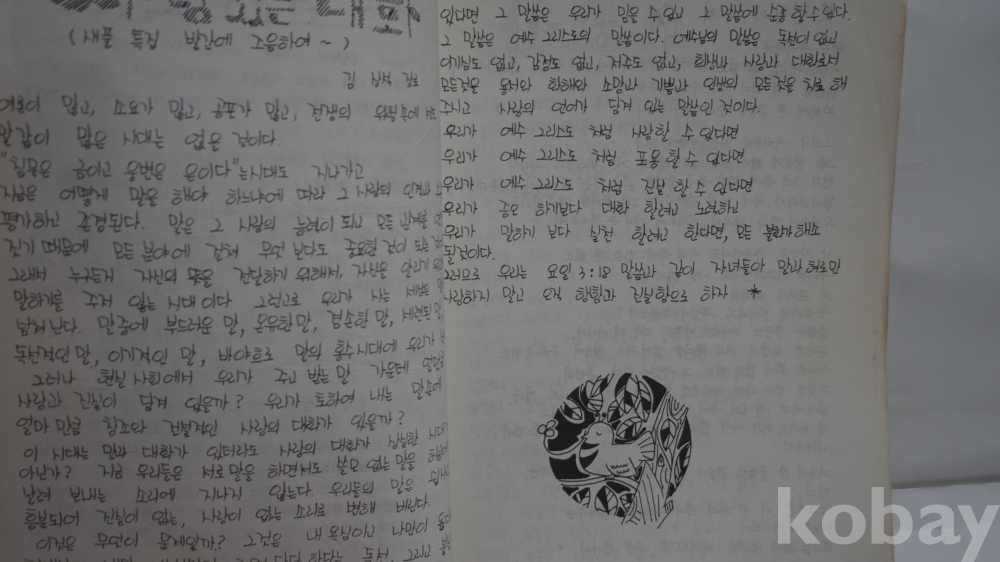 있는 대화
(새품 특집 발간에 조음하여~)
김 장로
많고, 소요가 많고, 공포가 많고, 전쟁의 위협속에
말같이 많은 시대는 없을 것이다.
"침묵은 금이고 웅변은 은이다"는시대도 지나가고
지금은 어떻게 말을 해야 하느냐에 따라 그 사람의
평가하고 존경된다. 말은 그 사람의 능력이 되고 모든 관계를
짓기 때문에 모든 분야에 걸쳐 무엇 보다도 중요한 것이 되는
그래서 누구든지 자신의 뜻을 전달하기 위해서, 자신을 알리기
말하기를 주저 않는 시대 이다 그런고로 우리가 사는 세상은
넘쳐난다. 말중에 부드러운 말, 온유한말, 겸손한 말, 세련된
독선적인말, 이기적인 말, 바야흐로 말의 홍수시대에 우리가
그러나 현실 사회에서 우리가 주고 받는 말 가운데 얼만큼
사랑과 진실이 담겨 있을까? 우리가 토하여 내는 말속에
얼마 만큼 창조와 건설적인 사랑의 대화가 있을까?
이 시대는 말과 대화가 있더라도 사랑의 대화가 상실한 시대
아닌가? 지금 우리들은 서로 말을 하면서도 쓸모 없는 말을
날려 보내는 소리에 지나지 않는다. 우리들의 말은 쉽게
흥분되어 진실이 없는, 사랑이 없는 소리로 변해 버린다.
이것은 무엇이 문제일까? 그것은 내 욕심이고 나만이
독선, 그리고
있다면 그 말씀은 우리가 믿을 수 있고 그 말씀에 순종 할 수 있다.
그 말씀은 예수 그리스도의 말씀이다. 예수님의 말씀은 독선이 없고
이기심도 없고, 감정도 없고, 저주도 없고, 희생과 사랑과 대화로서
모든것을 용서와 화해와 소망과 기쁨과 인생의 모든것을 치료 해
주시고 사랑의 언어가 담겨 있는 말씀인 것이다.
우리가 예수 그리스도 처럼 사랑할 수 있다면
우리가 예수 그리스도 처럼 포용 할 수 있다면
우리가 예수 그리스도 처럼 진실 할 수 있다면
우리가 증오 하기보다 대화 할려고 노력하고
우리가 말하기 보다 실천 할려고 한다면, 모든 불화가 해소
될것이다.
그러므로 우리는 요일 3:18 말씀과 같이 자녀들아 말과 혀로만
사랑하지 말고 오직 행함과 진실함으로 하자 *
kobay